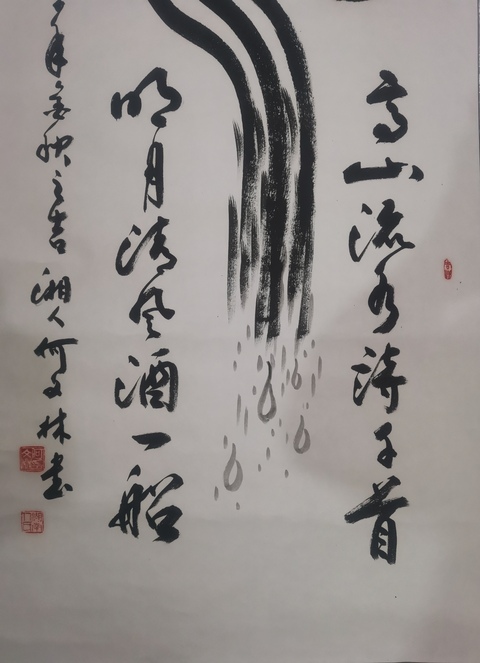 高山流水詩千首
明月清风酒一船
年金秋之吉 湘人何文林书